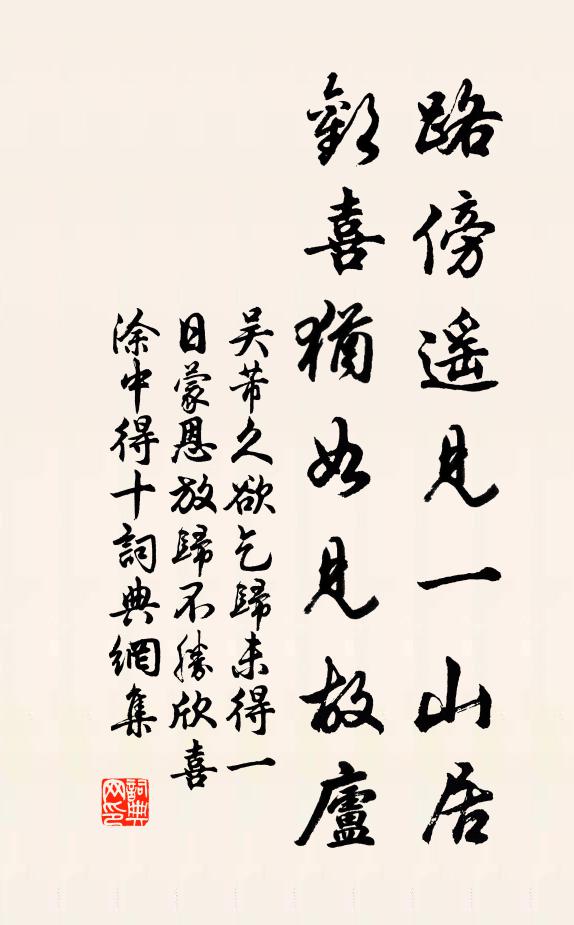 路傍遥見一山居
歡喜猶如見故廬
吳芾久欲乞歸未得一
日蒙恩放歸不勝欣喜
涂中得十詞典網集
詞典網印